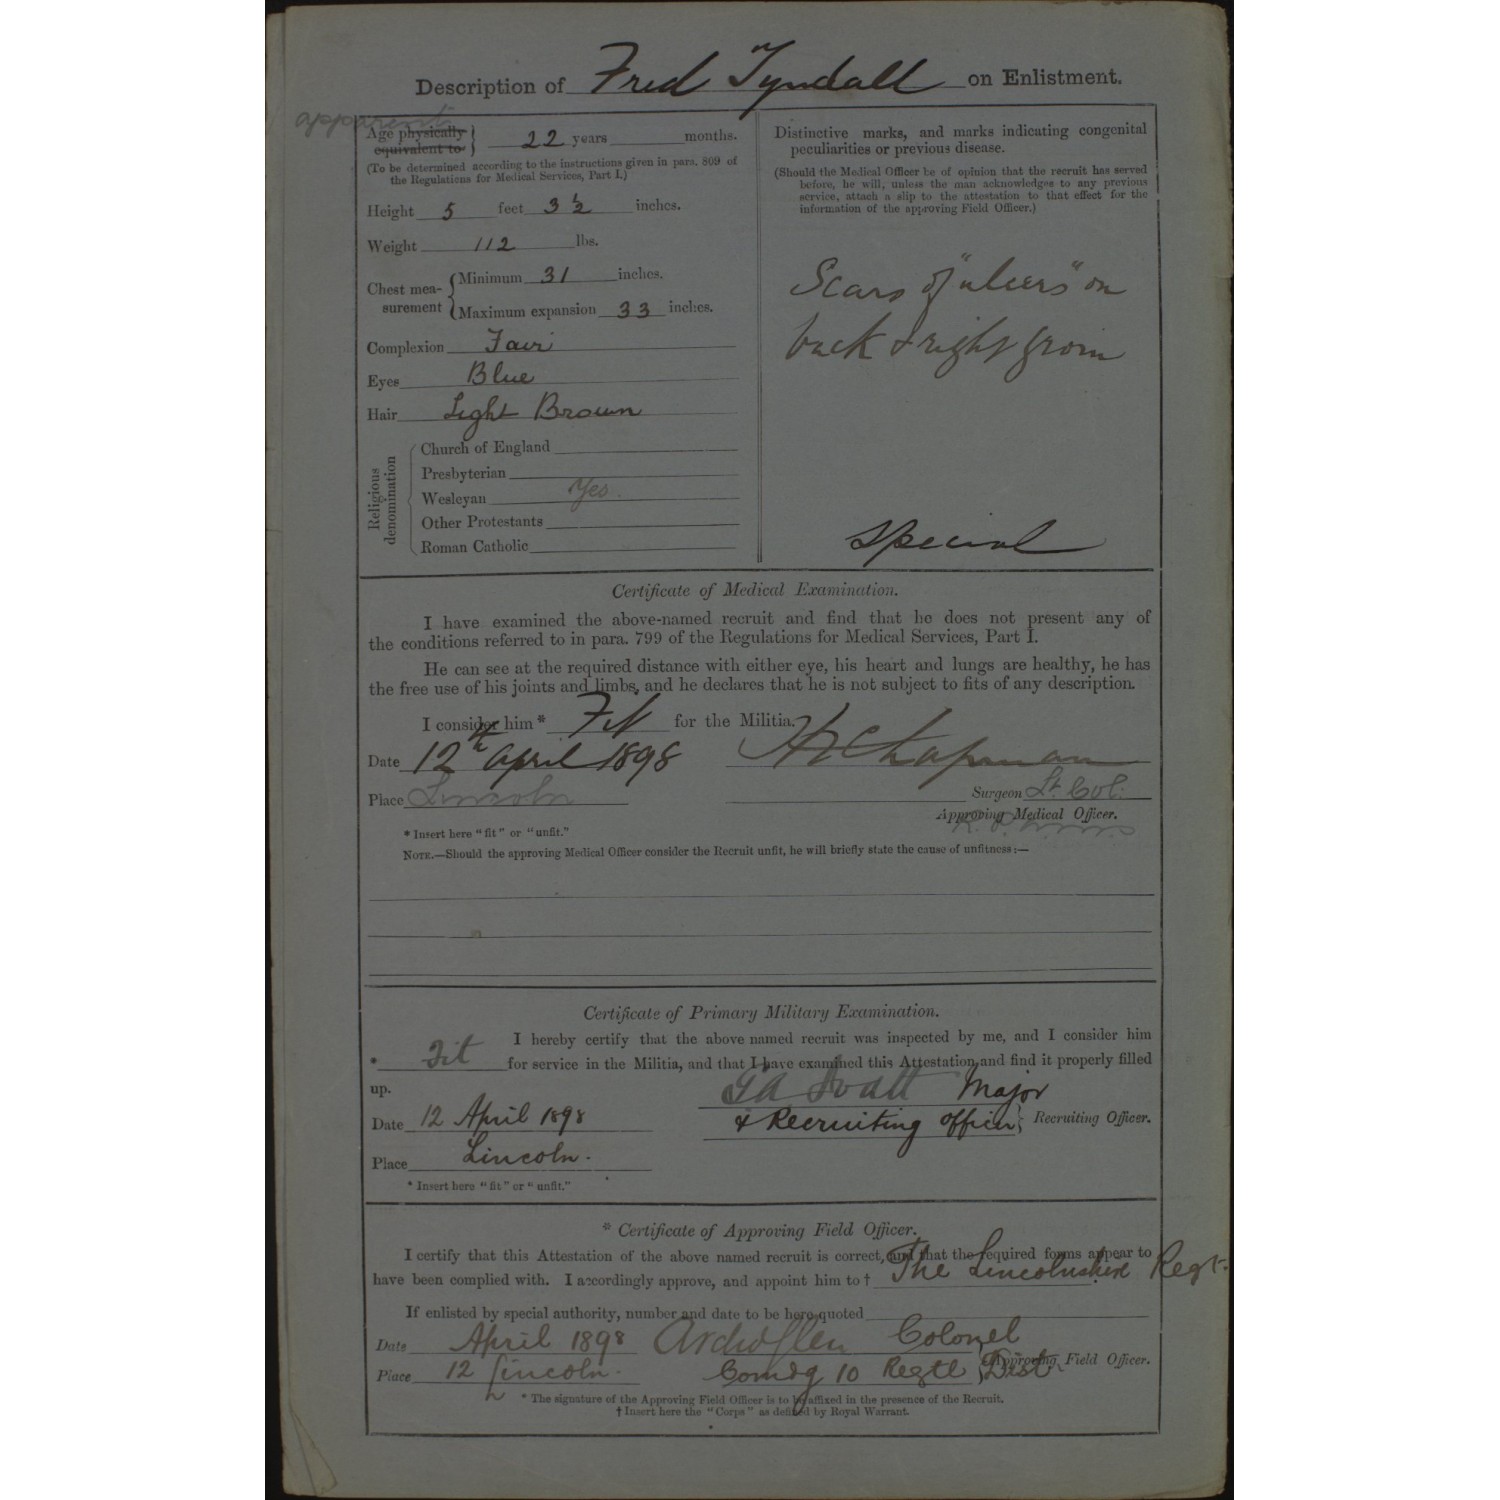 Description of Fred Tyndall on Enlistment.
apparent
Age physically
equivalent to } 22 years months.
(To be determined according to the instructions given in para. 809 of
the Regulations for Medical Services, Part I.)
Height 5 feet 3 ½ inches.
Weight 112 lbs.
Chest mea-
surement { Minimum 31 inches.
Maximum expansion 33 inches.
Complexion Fair
Eyes Blue
Hair Light Brown
Religious
denomination
Church of England
Presbyterian
Wesleyan Yes.
Other Protestants
Roman Catholic
Distinctive marks, and marks indicating congenital
peculiarities or previous disease.
(Should the Medical Officer be of opinion that the recruit has served
before, he will, unless the man acknowledges to any previous
service, attach a slip to the attestation to that effect for the
information of the approving Field Officer.)
Scars of "ulcers" on
back & right groin
Special
Certificate of Medical Examination.
I have examined the above-named recruit and find that he does not present any of
the conditions referred to in para. 799 of the Regulations for Medical Services, Part I.
He can see at the required distance with either eye, his heart and lungs are healthy, he has
the free use of his joints and limbs, and he declares that he is not subject to fits of any description.
I consider him * Fit for the Militia.
Date 12th April 1898 Chapman
Place Lincoln Surgeon Lt. Col.
Approving Medical Officer.
* Insert here "fit" or "unfit."
NOTE.—Should the approving Medical Officer consider the Recruit unfit, he will briefly state the cause of unfitness:—
Certificate of Primary Military Examination.
I hereby certify that the above named recruit was inspected by me, and I consider him
* Fit for service in the Militia, and that I have examined this Attestation and find it properly filled
up. Major
Date 12 April 1898 & Recruiting Officer } Recruiting Officer.
Place Lincoln.
* Insert here "fit" or "unfit."
* Certificate of Approving Field Officer.
I certify that this Attestation of the above named recruit is correct, and that the required forms appear to
have been complied with. I accordingly approve, and appoint him to † The Lincolnshire Regt.
If enlisted by special authority, number and date to be here quoted
Date April 1898 Colonel
Place 12 Lincoln. Comdg 10 Regtl Dist. } Approving Field Officer.
* The signature of the Approving Field Officer is to be affixed in the presence of the Recruit.
† Insert here the "Corps" as defined by Royal Warrant.